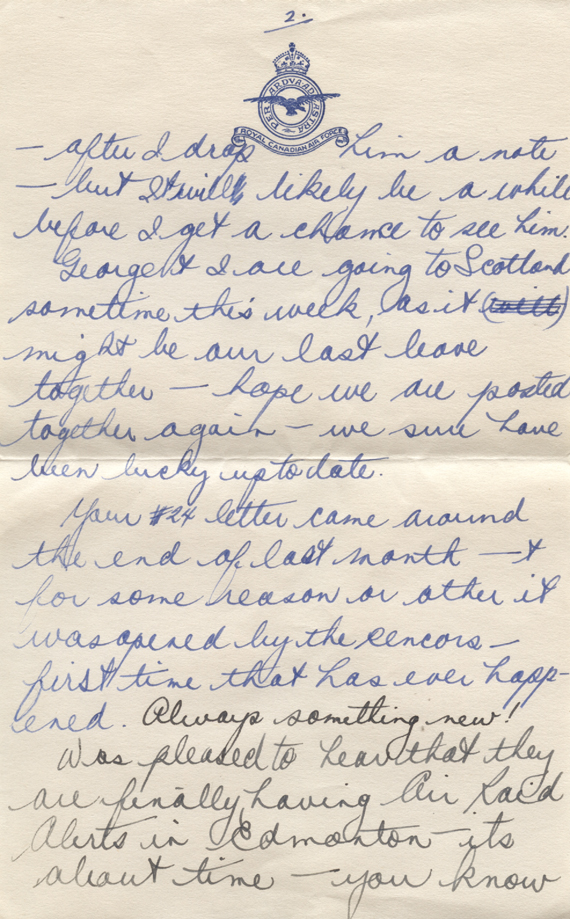 2.
PER ARDVA AD ASTRA
ROYAL CANADIAN AIR FORCE
- after I drop him a note
- but It will likely be a while
before I get a chance to see him.
George & I are going to Scotland
sometime this week, as it (will)
might be our last leave
together - hope we are posted
together again - we sure have
been lucky up to date.
Your #24 letter came around
the end of last month - &
for some reason or other it
was opened by the cencors -
first time that has ever happ-
ened. Always something new!
Was pleased to hear that they
are finally having Air Raid
Alerts in Edmonton - its
about time - you know